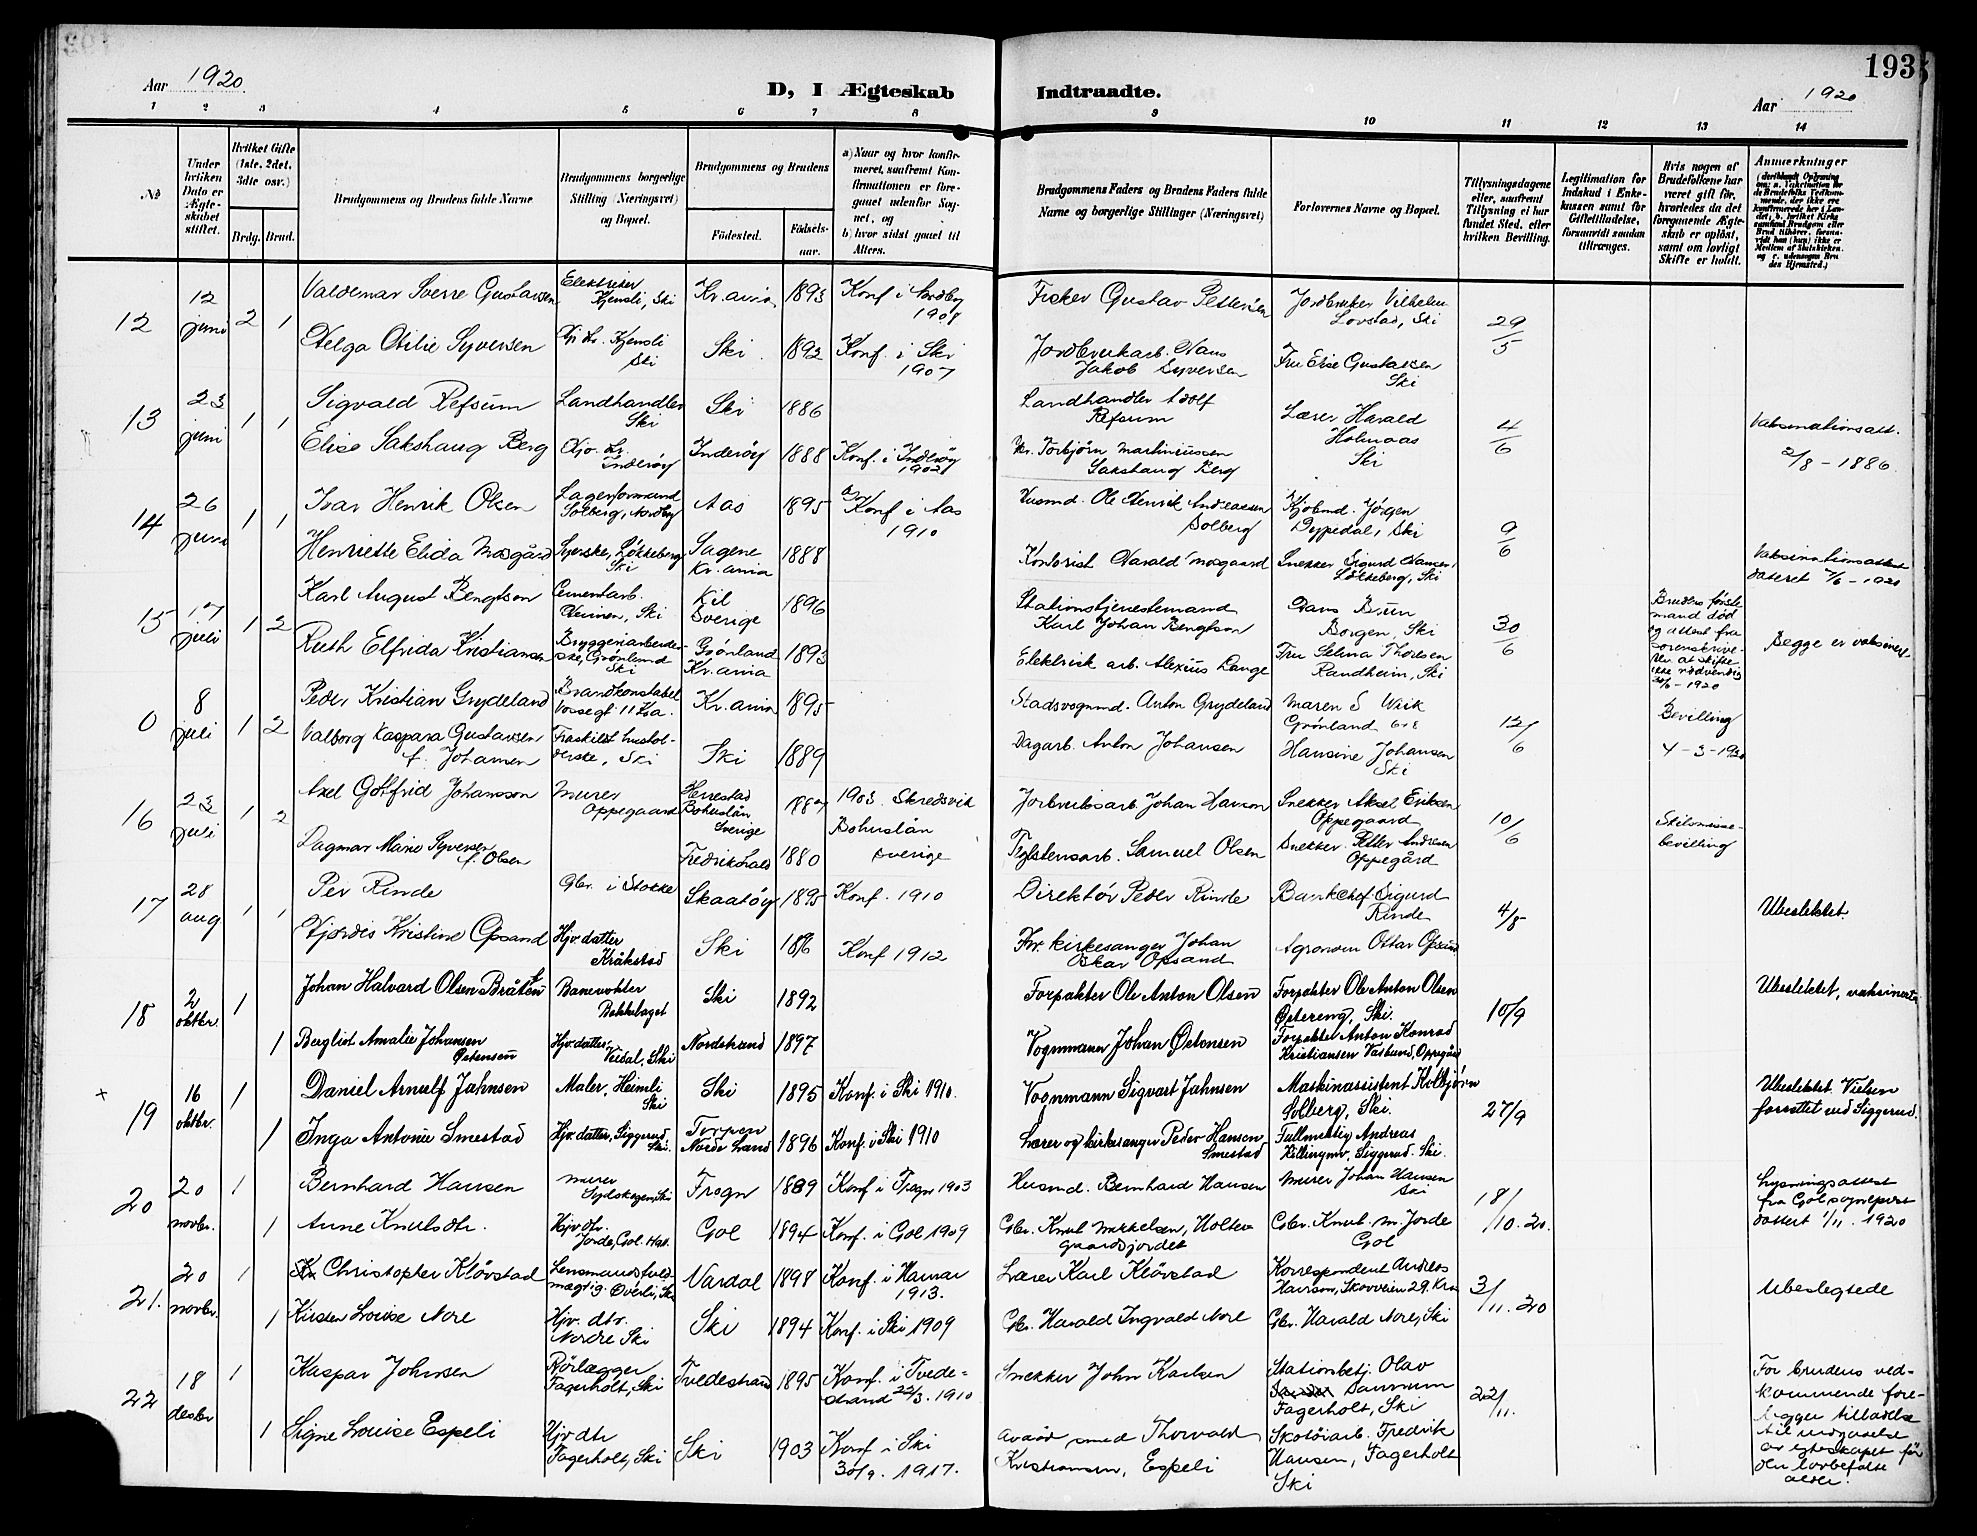 193
Aar 1920.
D, I Ægteskab Indtraadte.
Aar 1920
1 2 3 4 5 6 7 8 9 10 11 12 13 14
№
Under hvilken Dato er Ægteskabet stiftet.
Hvilket Gifte (1ste, 2det, 3die osv.)
Brdg. Brud.
Brudgommens og Brudens fulde Navne
Brudgommens borgerlige Stilling (Næringsvei) og Bopæl.
Brudgommens og Brudens
Födested. Födselsaar.
a) Naar og hvor konfirmeret, saafremt Konfirmationen er foregaaet udenfor Sognet, og
b) hvor sidst gaaet til Alters.
Brudgommens Faders og Brudens Faders fulde Navne og borgerlige Stillinger (Næringsvei)
Forlovernes Navne og Bopæl.
Tillysningsdagene eller, saafremt Tillysning ei har fundet Sted, efter hvilken Bevilling.
Legitimation for Indskud i Enkekassen samt for Giftetilladelse, forsaavidt saadan tiltrænges.
Hvis nogen af Brudefolkene har været gift för, hvorledes da det foregaaende Ægteskab er oplöst, samt om lovligt Skifte er holdt.
Anmærkninger
12 12 juni 2 1
Valdemar Sverre Gustavsen Elektriker Hjemli, Ski Kr.ania 1893 Konf i Nordby 1908 Fisker Gustav Pettersen Jordbruker Vilhelm Lovstad, Ski 29/5
Helga Otilie Syversen Hj. dr. Hjemli Ski Ski 1892 Konf. i Ski 1907 Jordbrukarb. Hans Jakob Syversen Fru Elise Gustavsen Ski
13 23 juni 1 1
Sigvald Refsum Landhandler Ski Ski 1886 Landhandler Adolf Refsum Lærer, Harald Holmaas Ski 4/6 Vaksinationsatt. 2/8 - 1886.
Elise Sakshaug Berg Inderöy Inderöy 1888 Konf. i Inderöy 1902 Torbjörn Martiniussen Sakshaug Berg
14 26 juni 1 1
Ivar Henrik Olsen Lagerformand Solberg, Nordby Aas 1895 Konf i Aas 1910 Husmd. Ole Henrik Andreassen Solberg Kjöbmd. Jörgen Dypedal, Ski 9/6
Henriette Elida Mosgård Syerske, Lökkeberg Ski Sagene Kr.ania 1888 Kontorist Harald Mosgaard Snekker Sigurd Hansen, Lökkeberg, Ski Vaksinationsattest dateret 7/6 - 1920
15 17 juli 1 2
Karl August Bengtson Cementarb. Ski Kil Sverige 1896 Stationstjenestemand Karl Johan Bengtson Hans Brun Borgen, Ski 30/6 Brudens förste mand död og attest fra sorenskriveren at skifte ikke nödvendig 1920 Begge er vaksinert
Ruth Elfrida Kristiansen Bryggeriarbeiderske, Grönlund Ski Grönland Kr.ania 1893 Elektrisk arb. Alexius Lange Fru Selma Thorsen Randheim, Ski
0 8 juli 1 2
Peder Kristian Grydeland Brandkonstabel Vossegt. 11 Kra. Kr.ania 1895 Stadsvognmd. Anton Grydeland Maren S Wiik Grönland 12/6 Bevilling 4 - 3 - 1920
Valborg Kaspara Gustavsen f. Johansen Fraskilt husholderske, Ski Ski 1889 Dagarb. Anton Johansen Hansine Johansen Ski
16 23 juli 1 2
Axel Gottfrid Johansson Murer Oppegaard Herrestad Bohuslän Sverige 1887 1903. Skredsvik Bohuslän Sverige Jorbruksarb. Johan Hanson Snekker Aksel Eriksen Oppegaard 10/6 Skilsmissebevilling
Dagmar Marie Syversen f. Olsen Fredrikshald 1880 Teglstensarb. Samuel Olsen Snekker Petter Andresen Oppegård
17 28 aug 1 1
Per Rinde Gbr. i Stokke Skaatöy 1895 Konf. 1910 Direktör Peder Rinde Bankchef Sigurd Rinde 4/8 Ubeslektet.
Hjördis Kristine Opsand Hjv. datter Kråkstad Ski 1896 Konf 1912 Fhv. kirkesanger Johan Oskar Opsand Agronom Ottar Opsand
18 2 oktbr. 1
Johan Halvard Olsen Bråten Banevokter Bekkelaget Ski 1892 Forpakter Ole Anton Olsen Forpakter Ole Anton Olsen Östereng, Ski. 10/9 Ubeslektet, vaksinerte
1 Bergliot Amalie Johansen Östensen Hjv. datter, Veidal, Ski Nordstrand 1897 Vognmann Johan Östensen Forpakter Anton Konrad Kristiansen Vasbund, Oppegård
19 16 oktbr. 1
Daniel Arnulf Jahnsen Maler, Heimli Ski Ski 1895 Konf. i Ski 1910. Vognmann Sigvart Jahnsen Maskinassistent Kolbjörn Solberg, Ski. 27/9 Ubeslektet. Vielsen forrettet ved Siggerud.
1 Inga Antonie Smestad Hjv. datter, Siggerud Ski. Torpen Nordre Land 1896 Konf. i Ski 1910 Lærer og kirkesanger Peder Hansen Smestad Fullmektig Andreas Killingmo, Siggerud. Ski.
20 20 novbr. 1
Bernhard Hansen Murer Sydskogen, Ski Frogn 1889 Konf. i Frogn 1903 Husmd. Bernhard Hansen Murer Johan Hansen Ski 18/10. 20. Lysningsattest fra Gol sogneprest datert 1/11. 1920
1 Anne Knutsdtr. Hjv dtr. Jorde, Gol. Gol 1894 Konf. i Gol 1909 Gbr. Knut Mikkelsen, Holtegaardsjordet Gbr. Knut M. Jorde Gol
21. 20 novbr. 1
Christopher Klövstad Lensmandsfuldmægtig. Överli, Ski Vardal 1898 Konf. i Hamar 1913. Lærer Karl Klövstad Korrespondent Andreas Hanson, Skovveien 29. Kra 3/11. 20 Ubeslegtede
1 Kirsten Louise Nore Hjv. dtr. Nordre Ski Ski 1894 Konf. i Ski 1909 Gbr. Harald Ingvald Nore Gbr. Harald Nore, Ski
22 18 desbr 1
Kaspar Johnsen Rörlægger Fagerholt, Ski Tvedestrand 1895 Konf. i Tvedestrand 22/3. 1910 Snekker John Karlsen Stationbetj. Olav Sannum Fagerholt, Ski 22/11. For brudens vedkommende forelegger tilladelse til indgaaelse av egteskapet för den lovbefalte alder.
1 Signe Louise Espeli Hjv dtr Fagerholt, Ski Ski 1903 Konf i Ski 30/9. 1917. smed Thorvald Kristiansen, Espeli Skotöiarb. Fredrik Hansen, Fagerholt Ski